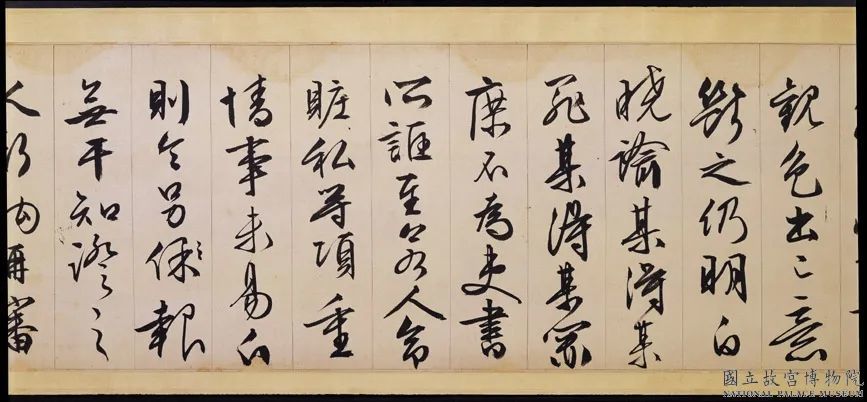 色出己意
斷之仍明白
曉諭某得某
罪某得某
庶不為吏書
所誑至若人命
贓私等項重
情事未易白
則令另報
無干知證之
人行再審
國立故宮博物院
NATIONAL PALACE MUSEUM